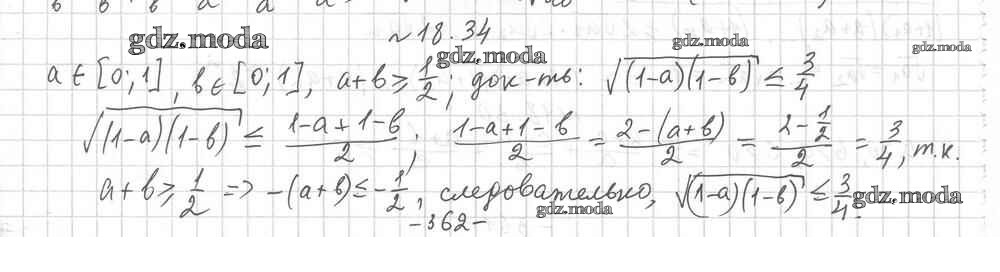 ~18.34
gdz.moda gdz.moda gdz.moda gdz.moda
a ∈ [0; 1], b ∈ [0; 1], a+b ≥ 1/2, док-ть: √((1-a)(1-b)) ≤ 3/4
√((1-a)(1-b)) ≤ (1-a+1-b)/2; (1-a+1-b)/2 = (2-(a+b))/2 = (2-1/2)/2 = 3/4, т.к.
a+b ≥ 1/2 => -(a+b) ≤ -1/2, следовательно, √((1-a)(1-b)) ≤ 3/4.
gdz.moda gdz.moda
-362-